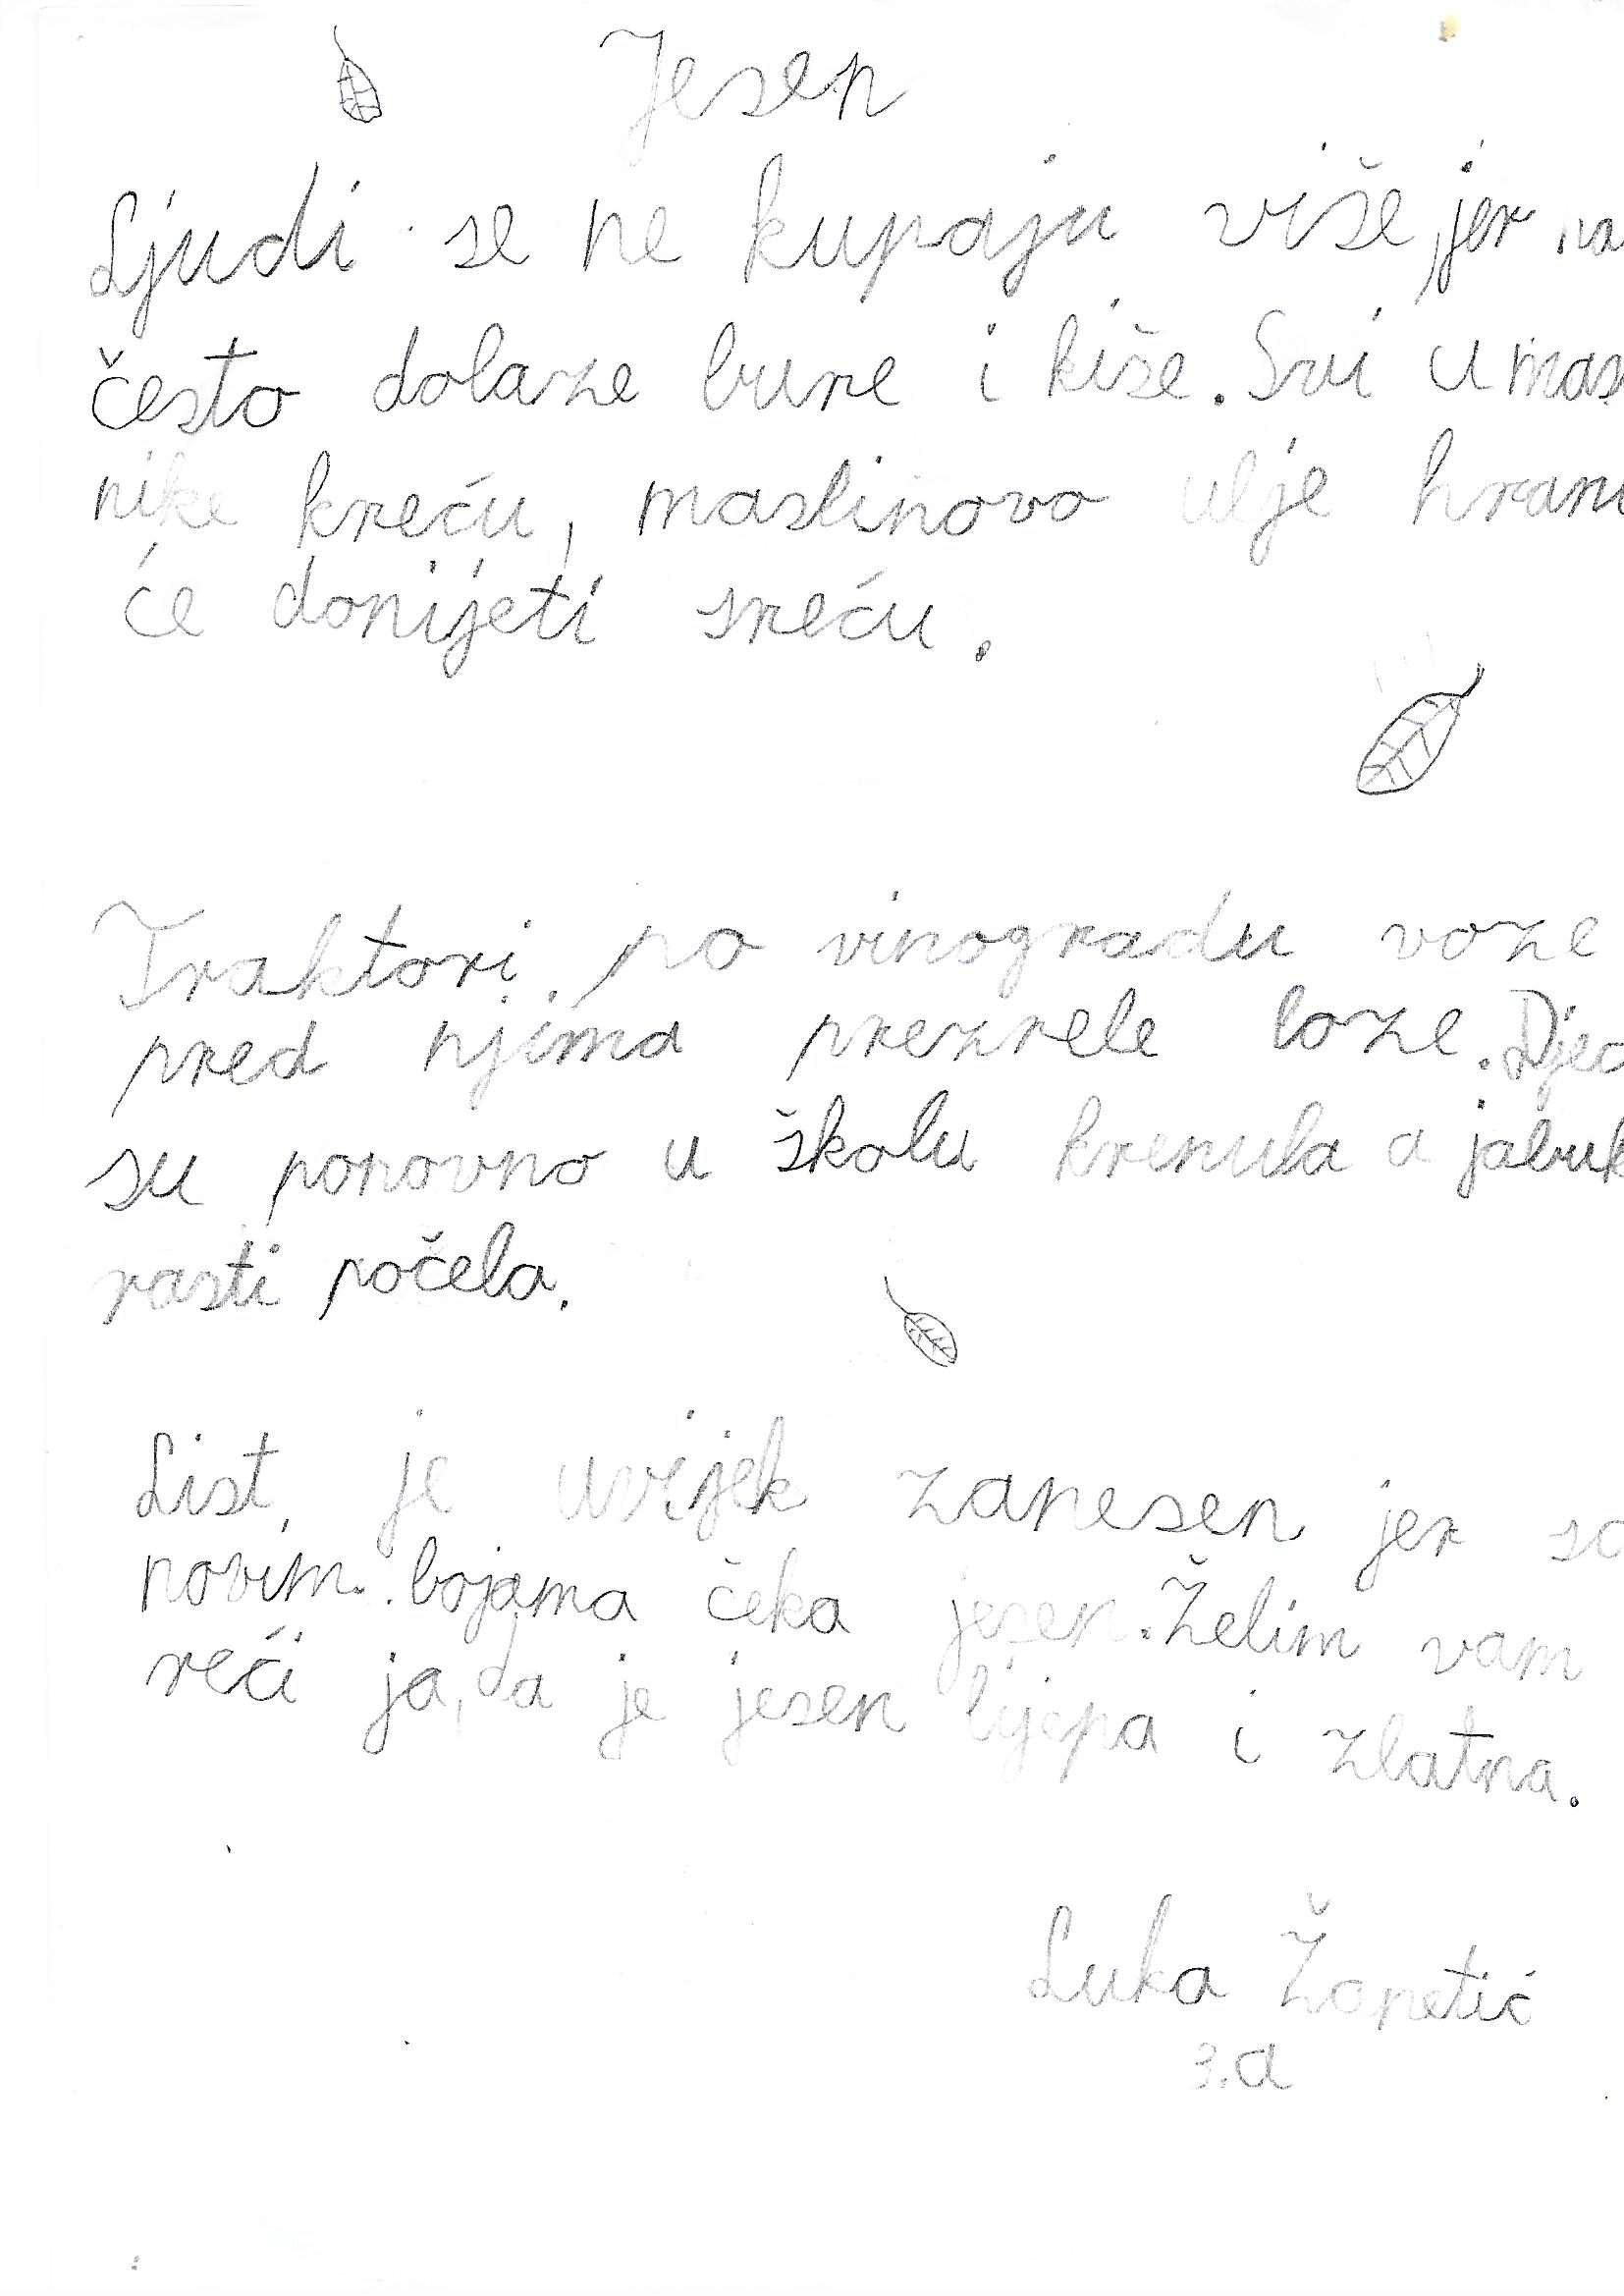 Jesen
Ljudi se ne kupaju više, jer
često dolaze bure i kiše. Svi u mas
nike kreću, maslinovo ulje hrani
će donijeti sreću.
Traktori po vinogradu voze
pred njima prezrele loze. Djec
su ponovno u školu krenula a jabuk
rasti počela.
List je uvijek zanesen jer sa
novim bojama čeka jesen. Želim vam
reći ja, da je jesen lijepa i zlatna.
Luka Žanetić
3.a